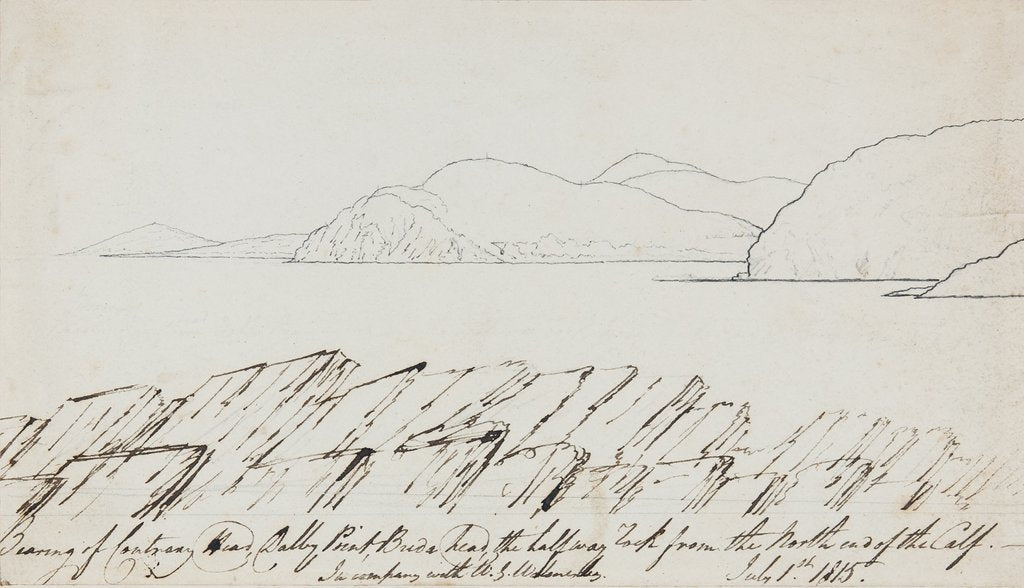 Bearing of Contrary Head, Dalby Point, Breda head, the half way Rock from the North end of the Calf. —
In company with W. G. July 1st 1815.